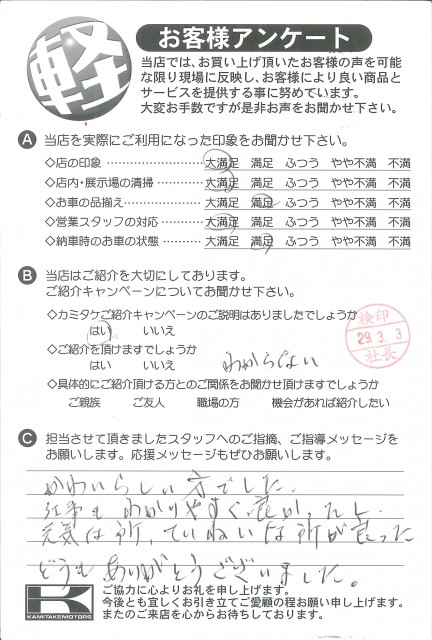 軽
お客様アンケート
当店では、お買い上げ頂いたお客様の声を可能
な限り現場に反映し、お客様により良い商品と
サービスを提供する事に努めています。
大変お手数ですが是非お声をお聞かせ下さい。
A 当店を実際にご利用になった印象をお聞かせ下さい。
◇店の印象 大満足 満足 ふつう やや不満 不満
◇店内・展示場の清掃 大満足 満足 ふつう やや不満 不満
◇お車の品揃え 大満足 満足 ふつう やや不満 不満
◇営業スタッフの対応 大満足 満足 ふつう やや不満 不満
◇納車時のお車の状態 大満足 満足 ふつう やや不満 不満
B 当店はご紹介を大切にしております。
ご紹介キャンペーンについてお聞かせ下さい。
◇カミタケご紹介キャンペーンのご説明はありましたでしょうか
はい いいえ
検印
29.3.3
社長
◇ご紹介を頂けますでしょうか
はい いいえ わからない
◇具体的にご紹介頂ける方とのご関係をお聞かせ頂けますでしょうか
ご親族 ご友人 職場の方 機会があれば紹介したい
C 担当させて頂きましたスタッフへのご指摘、ご指導メッセージを
お願いします。応援メッセージもぜひお願いします。
かわいらしい方でした。
もわかりやすく良かったし
元気な所、ていねいな所が良った
どうもありがとうございました。
KAMITAKEMOTORS
ご協力に心よりお礼を申し上げます。
今後とも宜しくお引き立てご愛顧の程お願い申し上げます。
またのご来店を心からお待ちしております。